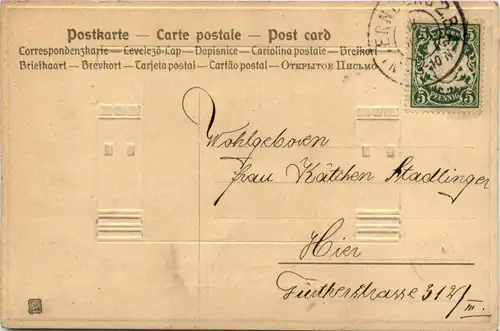 Postkarte — Carte postale — Post card
Correspondenzkarte — Levelező-Lap — Dopisnice — Cartolina postale — Brefkort
Briefkaart — Brevkort — Tarjeta postal — Cartão postal — Открытое Письмо
NÜRNBERG 2. B.P.
5 5
PFENNIG
Wohlgeboren
Frau Kätchen Stadlinger
Hier
Fürtherstrasse 312/III.